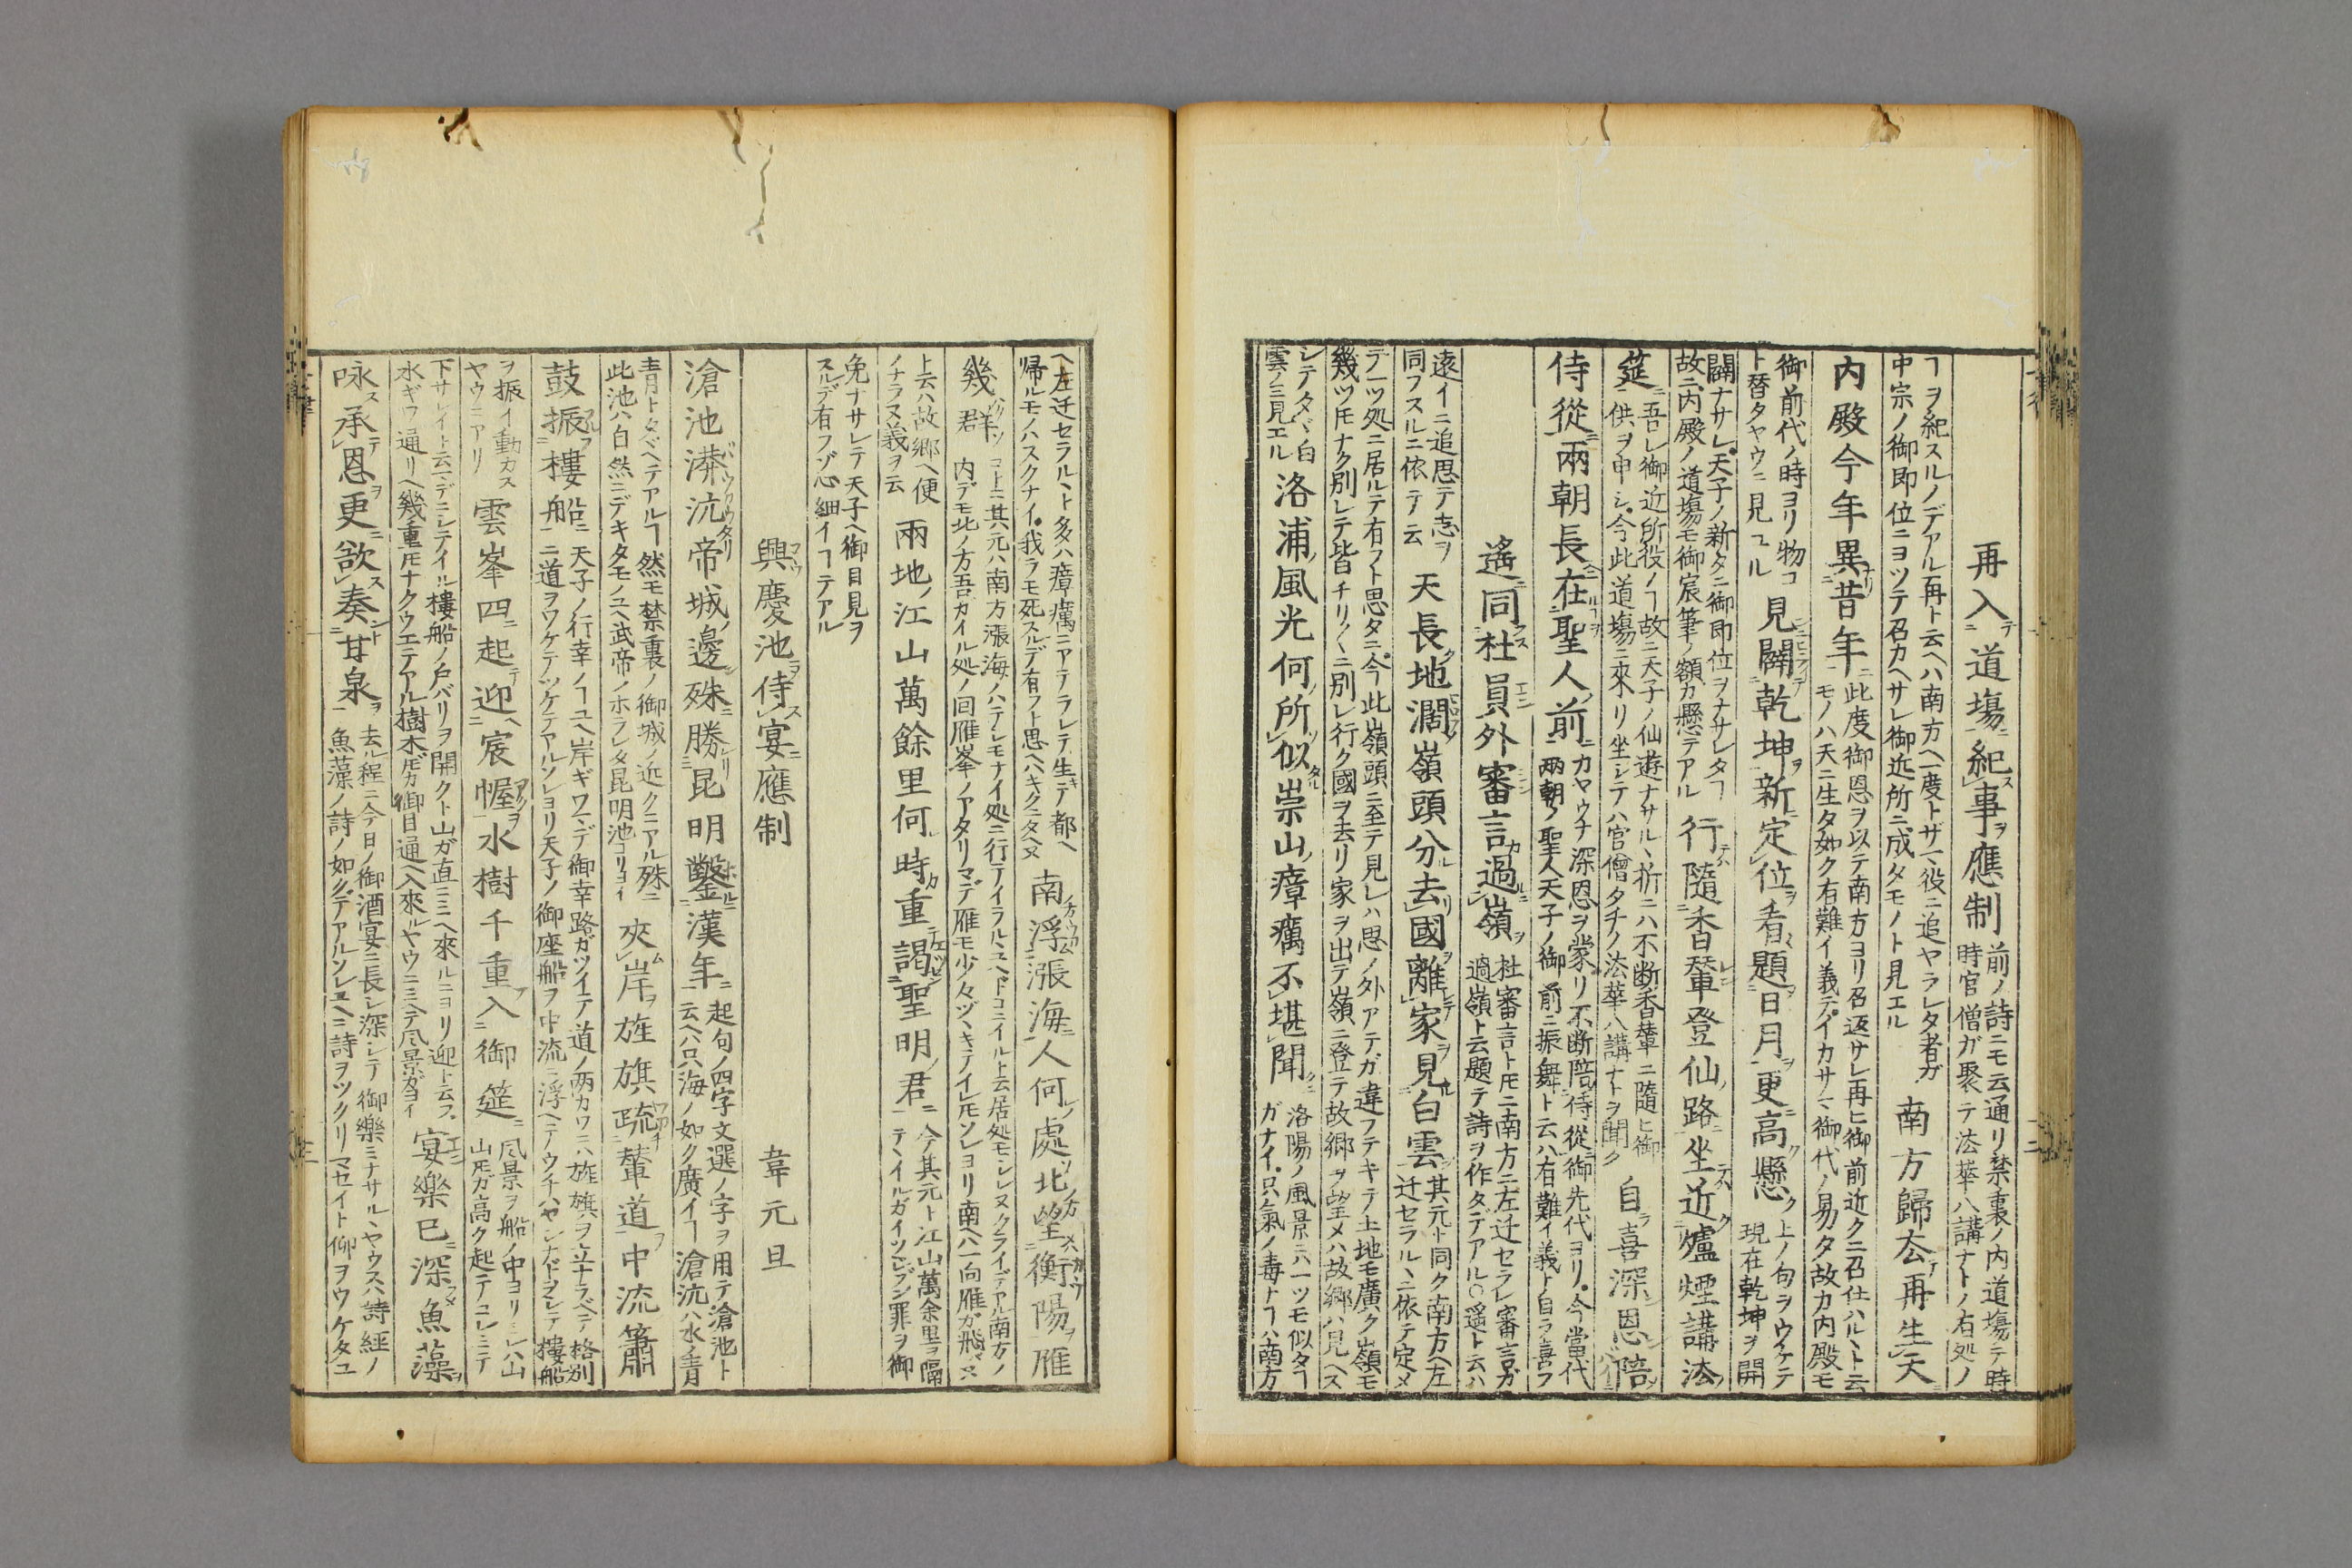 再入道場紀事應制 前ノ詩ニモ云通リ禁裏ノ内道場テ時
時官僧ガ聚テ法華八講ナトノ有処ノ
ヿヲ紀スルノデアル再ト云ヘハ南方ヘ一度トザマ役ニ追ヤラレタ者ガ
中宗ノ御即位ニヨツテ召カヘサレ御近所ニ成タモノト見エル
南方歸去再生天
内殿今年異昔年 此度御恩ヲ以テ南方ヨリ召返サレ再ヒ御前近クニ召仕ハルヽト云
モノハ天ニ生タ如ク有難イ義デイカサマ御代ノ易タ故カ内殿モ
御前代ノ時ヨリ物コ
ト替タヤウニ見エル
見闢乾坤新定位看題日月更高懸 上ノ句ヲウケテ
現在乾坤ヲ開
闢ナサレ天子ノ新タニ御即位ヲナサレタヿ
故ニ内殿ノ道場モ御宸筆ノ額カ懸テアル
行隨香輦登仙路坐近爐煙講法
筵 吾レ御近所役ノヿ故ニ天子ノ仙遊ナサルヽ折ニハ不断香輦ニ隨ヒ御
供ヲ申シ今此道場ニ來リ坐シテハ官僧タチノ法華八講ナトヲ聞ク
自喜深恩陪
侍從兩朝長在聖人前 カヤウナ深恩ヲ蒙リ不断陪侍從御先代ヨリ今當代
兩朝ノ聖人天子ノ御前ニ振舞ト云ハ有難イ義ト自ラ喜フ
遙同杜員外審言過嶺 杜審言ト𪜈ニ南方ニ左迁セラレ審言ガ
過嶺ト云題テ詩ヲ作タデアル○遥ト云ハ
遠イニ追思テ志ヲ
同フスルニ依テ云
天長地濶嶺頭分去國離家見白雲 其元ト同ク南方ヘ左
迁セラルヽニ依テ定メ
テ一ツ処ニ居ルテ有フト思タニ今此嶺頭ニ至テ見レハ思ノ外アテガ違フテキテ土地モ廣ク嶺モ
幾ツ𪜈ナク別レテ皆チリ〱ニ別レ行ク國ヲ去リ家ヲ出テ嶺ニ登テ故郷ヲ望メハ故郷ハ見ヘス
シテタヾ白
雲ノミ見エル
洛浦風光何所似崇山瘴癘不堪聞 洛陽ノ風景ニハ一ツモ似タヿ
ガナイ只氣ノ毒ナヿハ南方
ヘ左迁セラルヽト多ハ瘴癘ニアテラレテ生キテ都ヘ
帰ルモノハスクナイ我ラモ死スルデ有フト思ヘハキクニタヘヌ
南浮漲海人何處北望衡陽雁
幾羣 君コトニ其元ハ南方漲海ノハテシモナイ処ニ行テイラルヽユヘドコニイルト云居処モシレヌクライデアル南方ノ
内デモ北ノ方吾カイル処ノ回雁峯ノアタリマデ雁モ少々ヅヽキテイレ𪜈ソレヨリ南ヘハ一向雁ガ飛ハヌ
上云ハ故郷ヘ便
ノナラヌ義ヲ云
兩地江山萬餘里何時重謁聖明君 今其元ト江山萬余里ヲ隔
テヽイルガイツレブン罪ヲ御
免ナサレテ天子ヘ御目見ヲ
スルデ有フゾ心細イヿテアル
興慶池侍宴應制 韋元旦
滄池漭沆帝城邊殊勝昆明鑿漢年 起句ノ四字文選ノ字ヲ用テ滄池ト
云ヘハ只海ノ如ク廣イヿ滄沆ハ水ノ青
青トタベテアルヿ然モ禁裏ノ御城ノ近クニアル殊ニ
此池ハ自然ニデキタモノユヘ武帝ノホラレタ昆明池ヨリヨイ
夾岸旌旗疏輦道中流簫
鼓振樓船 天子ノ行幸ノヿユヘ岸ギワマデ御幸路ガツイテ道ノ両カワニハ旌旗ヲ立ナラベテ格別
ニ道ヲワケテツケテアルソレヨリ天子ノ御座船ヲ中流ニ浮ヘテウチハヤシナドヲシテ樓船
ヲ振イ動カス
ヤウニアリ
雲峯四起迎宸幄水樹千重入御筵 凬景ヲ船ノ中ヨリミレハ山
山𪜈ガ高ク起テコレミテ
下サレイト云マデニシテイル樓船ノ戸バリヲ開クト山ガ直ニミヘ來ルニヨリ迎ト云フ
水ギワ通リヘ幾重𪜈ナクウエテアル樹木𪜈カ御目通ヘ入來ルヤウニミヘテ凬景ガヨイ
宴樂已深魚藻
咏承恩更欲奏甘泉 去ル程ニ今日ノ御酒宴ニ長シ深シテ御樂ミナサルヽヤウスハ詩經ノ
魚藻ノ詩ノ如クデアルソレユヘニ詩ヲツクリマセイト仰ヲウケタユ